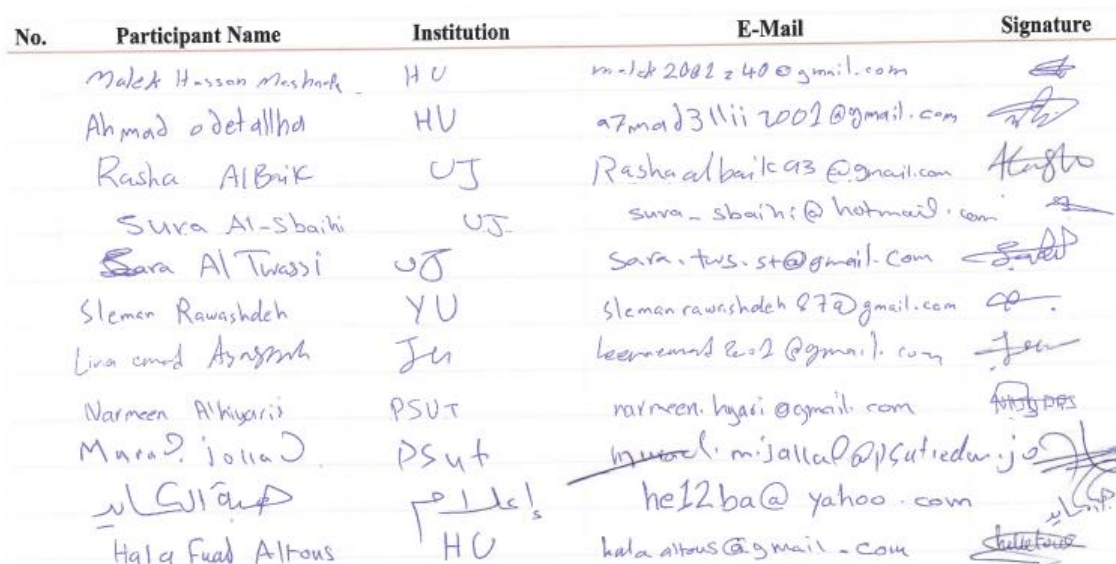 No. Participant Name Institution E-Mail Signature
Malek Hassan HU
Ahmad odetallha HU a7mad3llii2001@gmail.com
Rasha AlBaik UJ Rashaalbaik93@gmail.com
Sura Al-Sbaihi UJ sura_sbaihi@hotmail.com
Sara Al Twassi UJ sara.tws.st@gmail.com
Sleman Rawashdeh YU slemanrawashdeh87@gmail.com
Lina emad Ju
Narmeen Alhiyari PSUT narmeen.hyari@gmail.com
Murad jollad PSut
هبة الكايد إعلام he12ba@yahoo.com
Hala Fuad Altous HU halaaltous@gmail.com